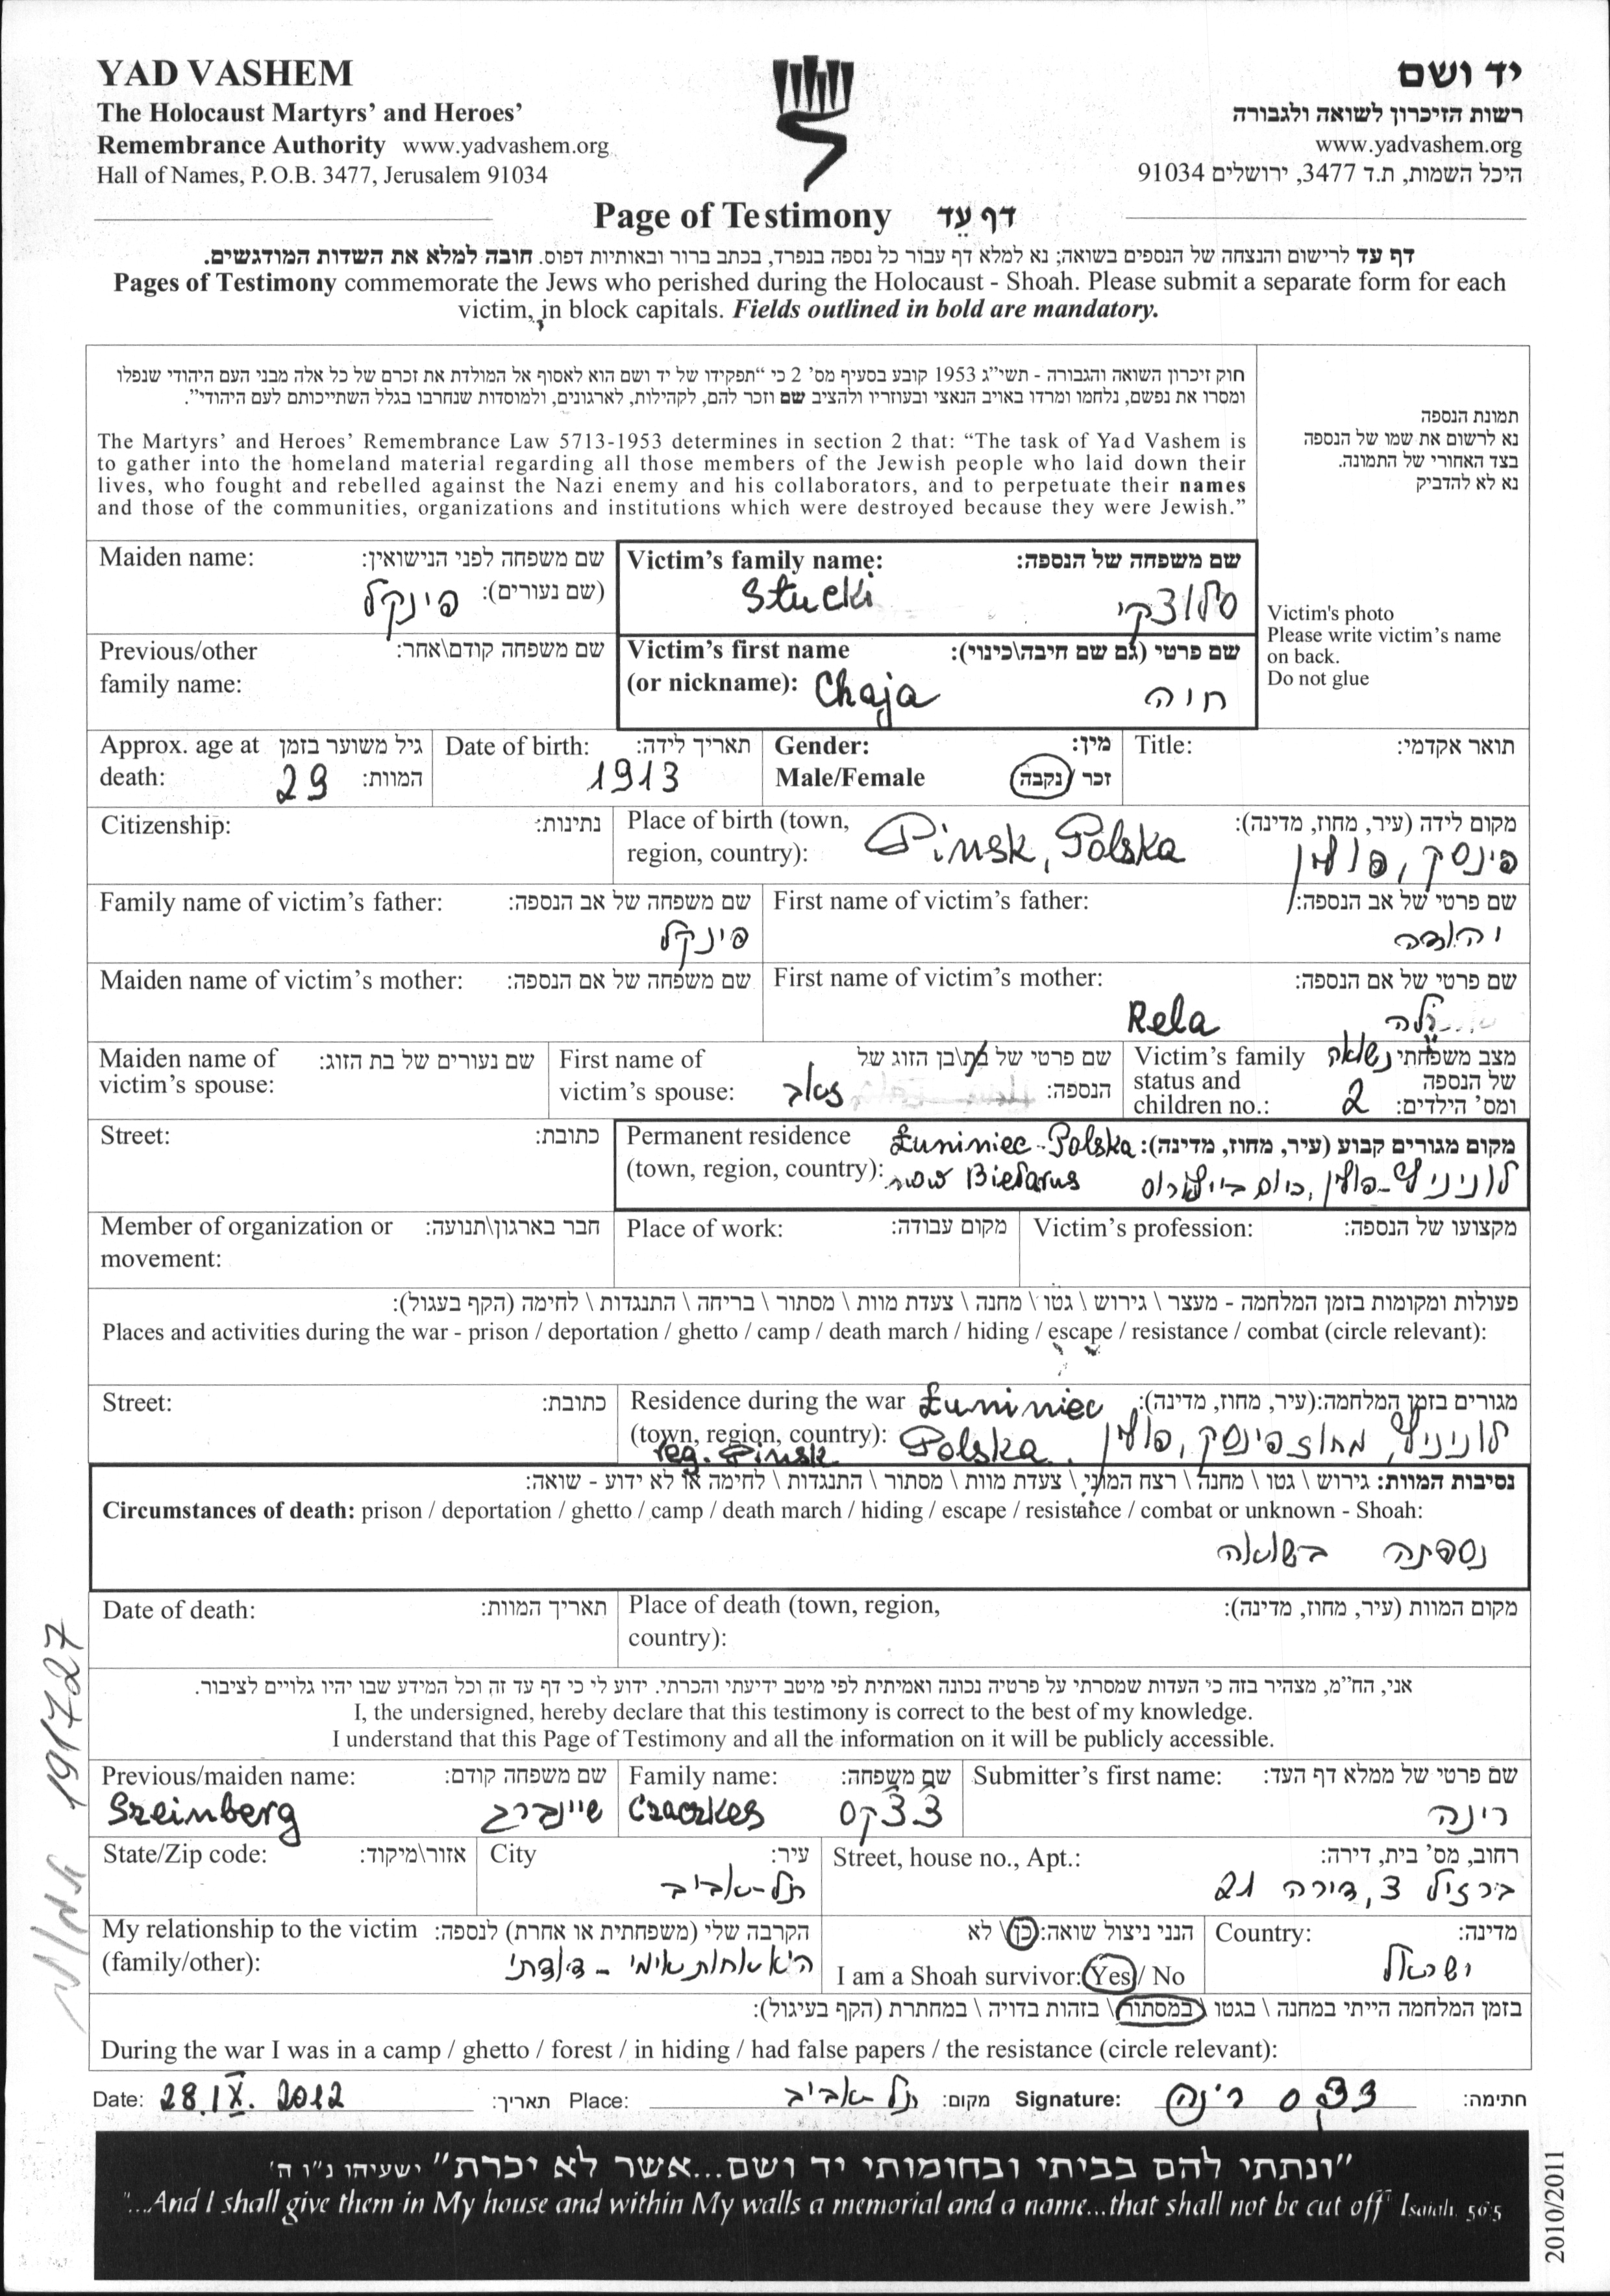 YAD VASHEM
The Holocaust Martyrs' and Heroes'
Remembrance Authority www.yadvashem.org
Hall of Names, P.O.B. 3477, Jerusalem 91034
יד ושם
רשות הזיכרון לשואה ולגבורה
www.yadvashem.org
היכל השמות, ת.ד 3477, ירושלים 91034
Page of Testimony דף עֵד
דף עד לרישום והנצחה של הנספים בשואה; נא למלא דף עבור כל נספה בנפרד, בכתב ברור ובאותיות דפוס. חובה למלא את השדות המודגשים.
Pages of Testimony commemorate the Jews who perished during the Holocaust - Shoah. Please submit a separate form for each
victim, in block capitals. Fields outlined in bold are mandatory.
חוק זיכרון השואה והגבורה - תשי"ג 1953 קובע בסעיף מס' 2 כי "תפקידו של יד ושם הוא לאסוף אל המולדת את זכרם של כל אלה מבני העם היהודי שנפלו
ומסרו את נפשם, נלחמו ומרדו באויב הנאצי ובעוזריו ולהציב שם וזכר להם, לקהילות, לארגונים, ולמוסדות שנחרבו בגלל השתייכותם לעם היהודי".
The Martyrs' and Heroes' Remembrance Law 5713-1953 determines in section 2 that: "The task of Yad Vashem is
to gather into the homeland material regarding all those members of the Jewish people who laid down their
lives, who fought and rebelled against the Nazi enemy and his collaborators, and to perpetuate their names
and those of the communities, organizations and institutions which were destroyed because they were Jewish."
תמונת הנספה
נא לרשום את שמו של הנספה
בצד האחורי של התמונה.
נא לא להדביק
Victim's photo
Please write victim's name
on back.
Do not glue
Maiden name: שם משפחה לפני הנישואין:
(שם נעורים): פינקל
Victim's family name: שם משפחה של הנספה:
Słucki סלוצקי
Previous/other שם משפחה קודם\אחר:
family name:
Victim's first name שם פרטי (גם שם חיבה\כינוי):
(or nickname): Chaja חיה
Approx. age at גיל משוער בזמן
death: 29 המוות:
Date of birth: תאריך לידה:
1913
Gender: מין:
Male/Female זכר / נקבה
Title: תואר אקדמי:
Citizenship: נתינות:
Place of birth (town, Pinsk, Polska מקום לידה (עיר, מחוז, מדינה):
region, country): פינסק, פולין
Family name of victim's father: שם משפחה של אב הנספה:
פינקל
First name of victim's father: שם פרטי של אב הנספה:
יהודה
Maiden name of victim's mother: שם משפחה של אם הנספה:
First name of victim's mother: שם פרטי של אם הנספה:
Rela
Maiden name of שם נעורים של בת הזוג:
victim's spouse:
First name of שם פרטי של בת\בן הזוג של
victim's spouse: זאב הנספה:
Victim's family מצב משפחתי נשואה
status and של הנספה
children no.: 2 ומס' הילדים:
Street: כתובת:
Permanent residence Łuniniec-Polska מקום מגורים קבוע (עיר, מחוז, מדינה):
(town, region, country): Biełarus לוניניץ-פולין, כיום ביילורוס
Member of organization or חבר בארגון\תנועה:
movement:
Place of work: מקום עבודה:
Victim's profession: מקצועו של הנספה:
פעולות ומקומות בזמן המלחמה - מעצר \ גירוש \ גטו \ מחנה \ צעדת מוות \ מסתור \ בריחה \ התנגדות \ לחימה (הקף בעגול):
Places and activities during the war - prison / deportation / ghetto / camp / death march / hiding / escape / resistance / combat (circle relevant):
Street: כתובת:
Residence during the war Łuniniec מגורים בזמן המלחמה:(עיר, מחוז, מדינה):
(town, region, country): Polska לוניניץ, מחוז פינסק, פולין
reg. Pinsk
נסיבות המוות: גירוש \ גטו \ מחנה \ רצח המוני \ צעדת מוות \ מסתור \ התנגדות \ לחימה או לא ידוע - שואה:
Circumstances of death: prison / deportation / ghetto / camp / death march / hiding / escape / resistance / combat or unknown - Shoah:
נספתה בשואה
Date of death: תאריך המוות:
Place of death (town, region, מקום המוות (עיר, מחוז, מדינה):
country):
אני, הח"מ, מצהיר בזה כי העדות שמסרתי על פרטיה נכונה ואמיתית לפי מיטב ידיעתי והכרתי. ידוע לי כי דף עד זה וכל המידע שבו יהיו גלויים לציבור.
I, the undersigned, hereby declare that this testimony is correct to the best of my knowledge.
I understand that this Page of Testimony and all the information on it will be publicly accessible.
Previous/maiden name: שם משפחה קודם:
Szeinberg שיינברג
Family name: שם משפחה:
Czaczkes צ'צ'קס
Submitter's first name: שם פרטי של ממלא דף העד:
רינה
State/Zip code: אזור\מיקוד:
City עיר:
תל-אביב
Street, house no., Apt.: רחוב, מס' בית, דירה:
ברזיל 3, דירה 21
My relationship to the victim הקרבה שלי (משפחתית או אחרת) לנספה:
(family/other): היא אחות אימי - דודתי
הנני ניצול שואה: כן \ לא
I am a Shoah survivor: Yes / No
Country: מדינה:
ישראל
בזמן המלחמה הייתי במחנה \ בגטו \ במסתור \ בזהות בדויה \ במחתרת (הקף בעיגול):
During the war I was in a camp / ghetto / forest / in hiding / had false papers / the resistance (circle relevant):
Date: 28.IX.2012 תאריך: Place: תל-אביב מקום: Signature: צ'צ'קס רינה חתימה:
"ונתתי להם בביתי ובחומותי יד ושם...אשר לא יכרת" ישעיהו נ"ו ה'
"...And I shall give them in My house and within My walls a memorial and a name...that shall not be cut off" Isaiah, 56:5
2010/2011
191727